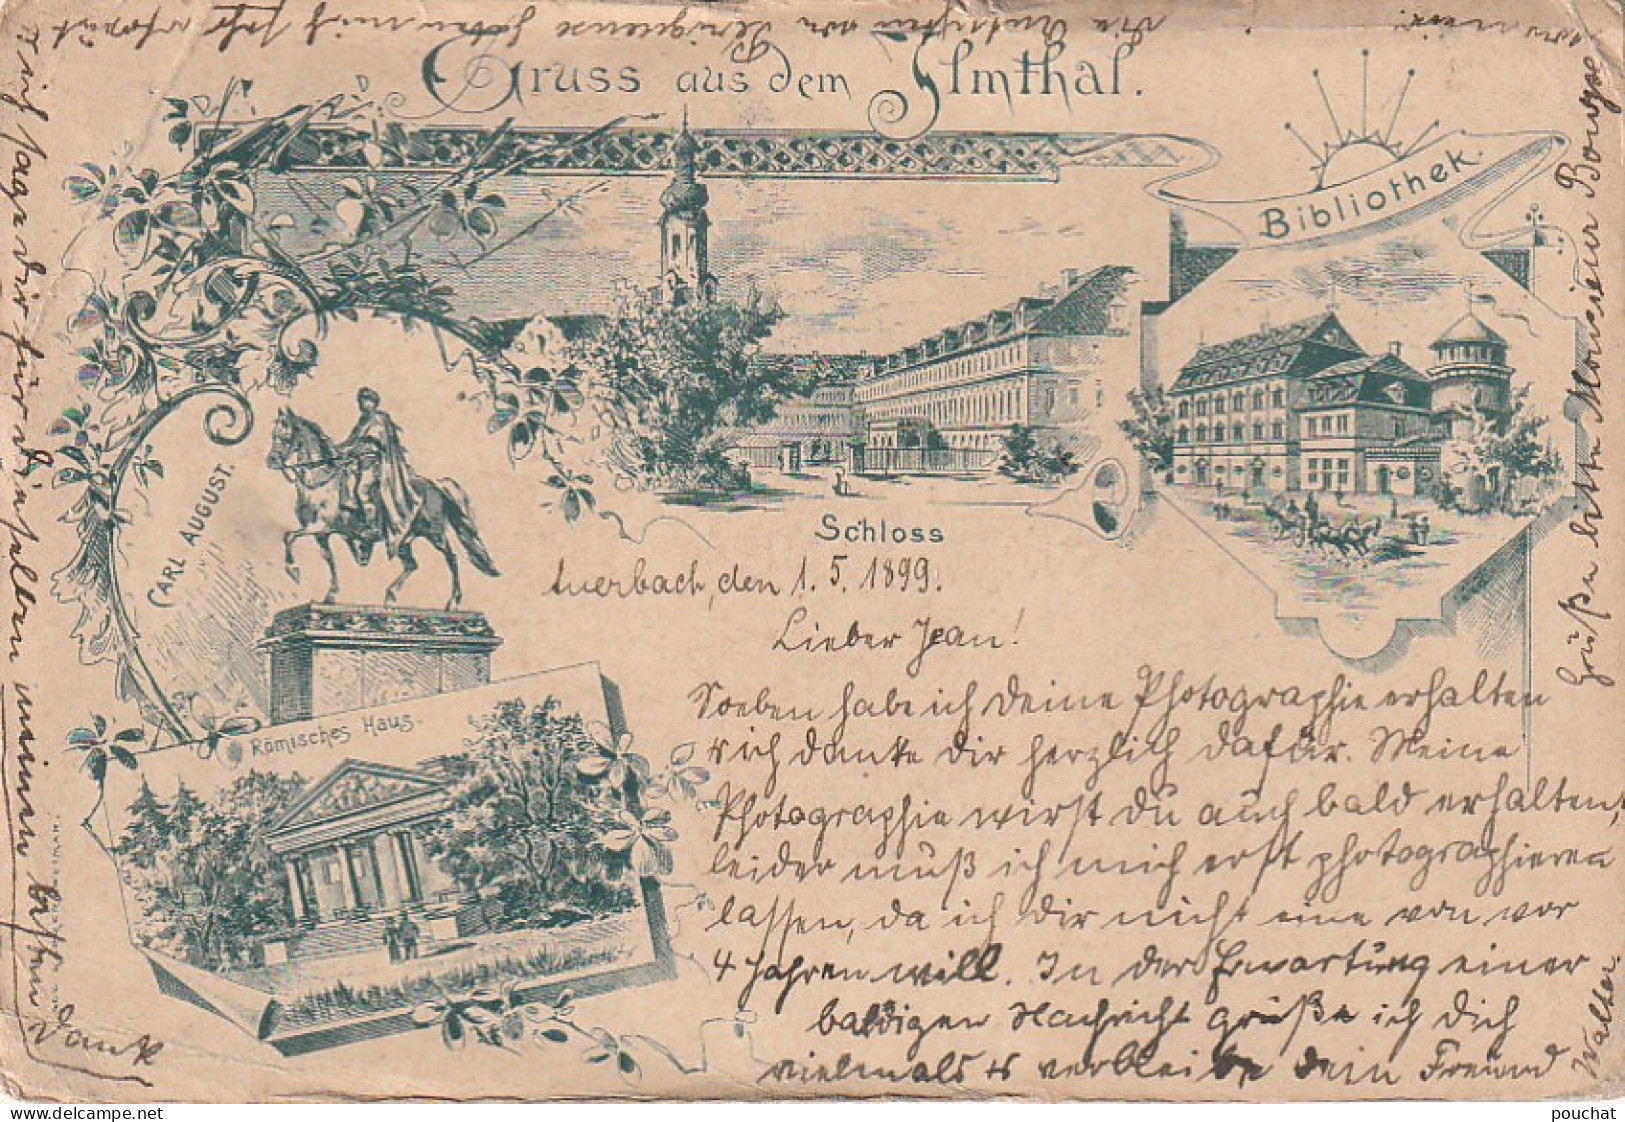 Gruss aus dem Ilmthal.
Bibliothek.
CARL AUGUST.
Schloss
Römisches Haus.
Auerbach, den 1. 5. 1899.
Lieber Jean!
Soeben habe ich Deine Photographie erhalten
& ich danke Dir herzlich dafür. Meine
Photographie wirst Du auch bald erhalten,
leider muß ich mich erst photographieren
lassen, da ich Dir nicht eine von vor
4 Jahren will. In der Erwartung einer
baldigen Nachricht grüße ich Dich
vielmals & verbleibe Dein Freund
Walter.
Grüße bitte Monsieur Bouyse
Die Ansichten von Perigueux haben mich sehr erfreut
& ich sage Dir für dieselben meinen besten
Dank
pouchat